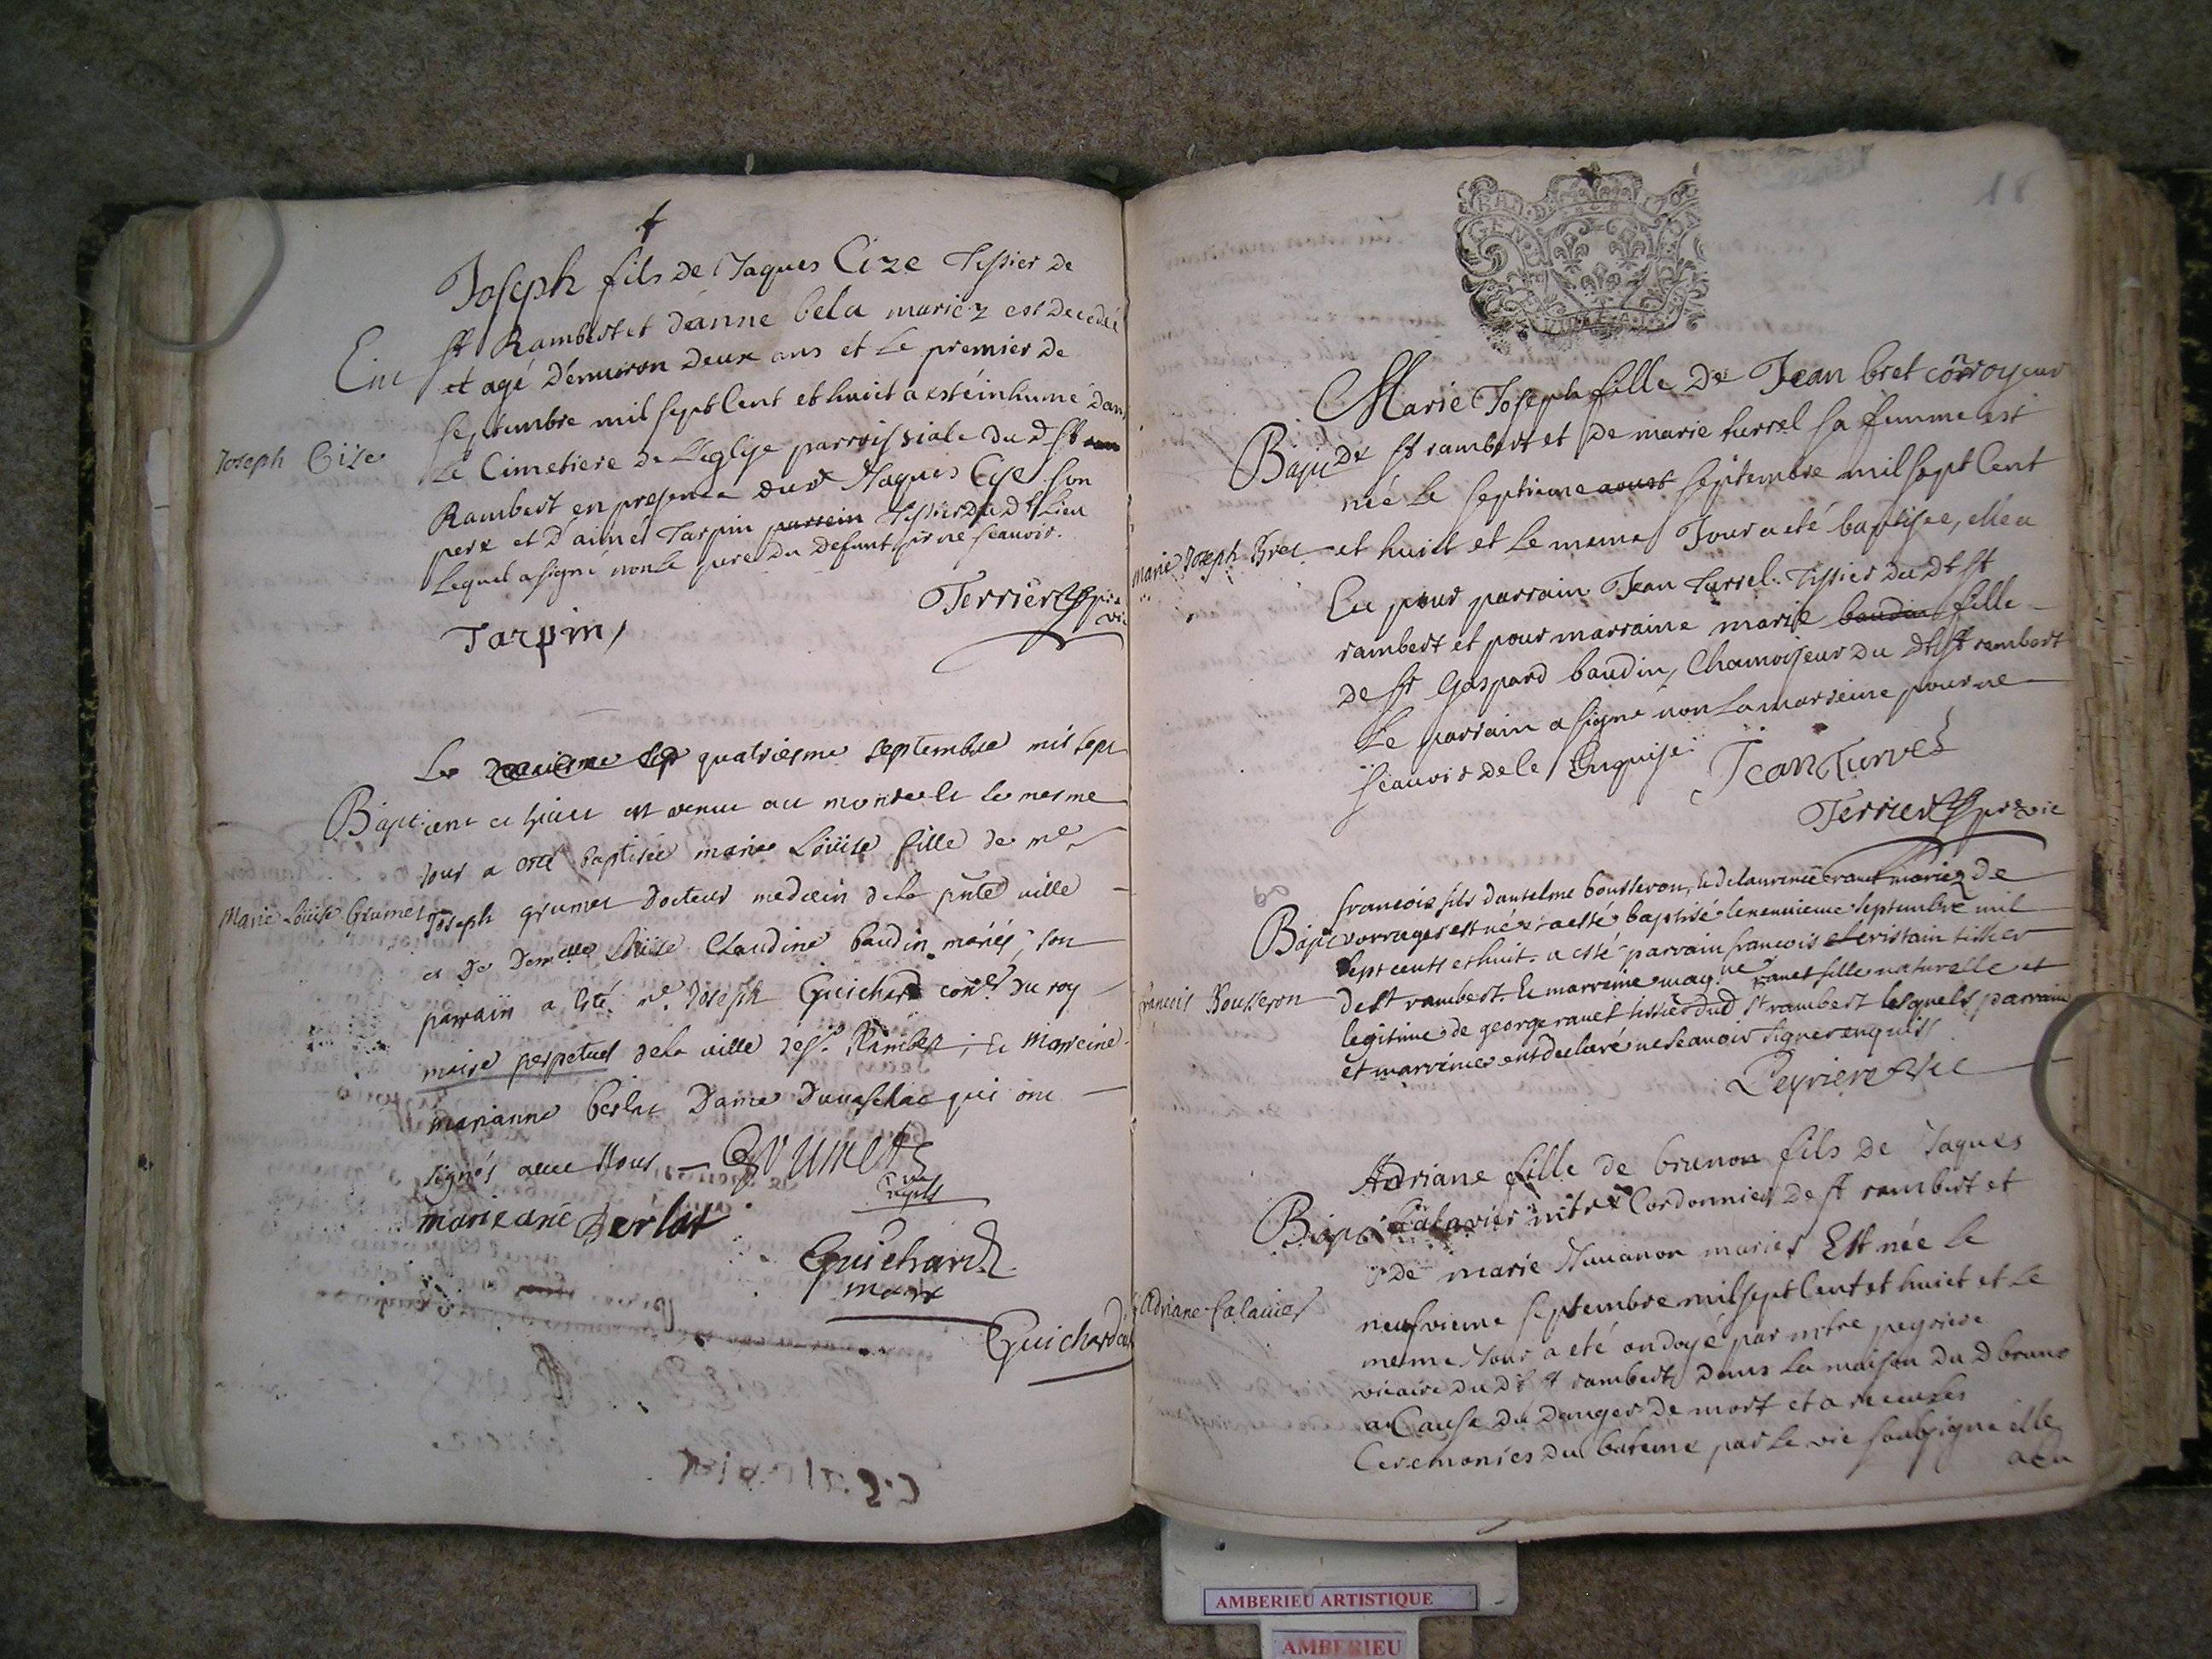 Joseph fils de Jaques Cize tissier de
st Rambert et d'anne bela mariez est decedé
Ent
et agé d'énviron deux ans et le premier de
septembre mil sept Cent et huict a esté inhumé dans
Joseph Cize
le Cimetiere de l'église parroissiale du d st
Rambert en presence dud Jaques Cize son
pere et d'aimé Tarpin parrein tissier du dt lieu
lequel a signé non le pere du defunt pr ne scauoir.
Terrier
Tarpin
Le quatriesme septembre mil sept
Bapt cent et huict est venue au monde et le mesme
jour a esté baptisée marie Loüise fille de me
Marie Loüise Grumet
Joseph grumet Docteur medecin de la pnte ville
et De Demelle Loüise Claudine baudin mariés, son
parrain a esté me Joseph Guichard coner du roy
maire perpetuel de la ville de st Rambert, et marreine
marianne berlat Dame qui ont
signés auec Nous
Grumet
marie ane Berlat
Guichard
maire
Guichard
18
GEN
Marie Joseph fille De Jean bret corroyeur
Bapt de st rambert et de marie turrel sa femme est
née le septieme aoust septembre mil sept Cent
marie Joseph Bret
et huict et le meme Jour a eté baptisee, elle a
Eu pour parrain Jean turrel tissier du dt st
rambert et pour marraine marie baudin fille
de sr Gaspard baudin, Chamoiseur du dt st rambert
le parrain a signé non la marreine pour ne
scauoir de ce Enquise
Jean Turrel
Terrier pre vic
francois fils d'antelme bousseron, et de laurence rauet mariez de
Bapt vorrages est né et a esté baptisé le neuuieme septembre mil
sept cents et huit. a esté parrain francois tissier
francois Bousseron
de st rambert. et marreine rauet fille naturelle et
legitime de george rauet tissier dud st rambert lesquels parrain
et marreine ont declaré ne scauoir signer enquis
Peyriere vic
Adriane fille de brunon fils de Jaques
Bapt falavier mtre Cordonnier de st rambert et
de marie mariés Est née le
Adriane falauier
neufvieme septembre mil sept Cent et huict et le
meme Jour a eté ondoyé par mtre peyriere
vicaire du dt st rambert dans la maison du d bruno
a Cause du danger de mort et a receu les
Ceremonies du bateme par le vic soubsigne elle
a eu
AMBERIEU ARTISTIQUE
AMBERIEU